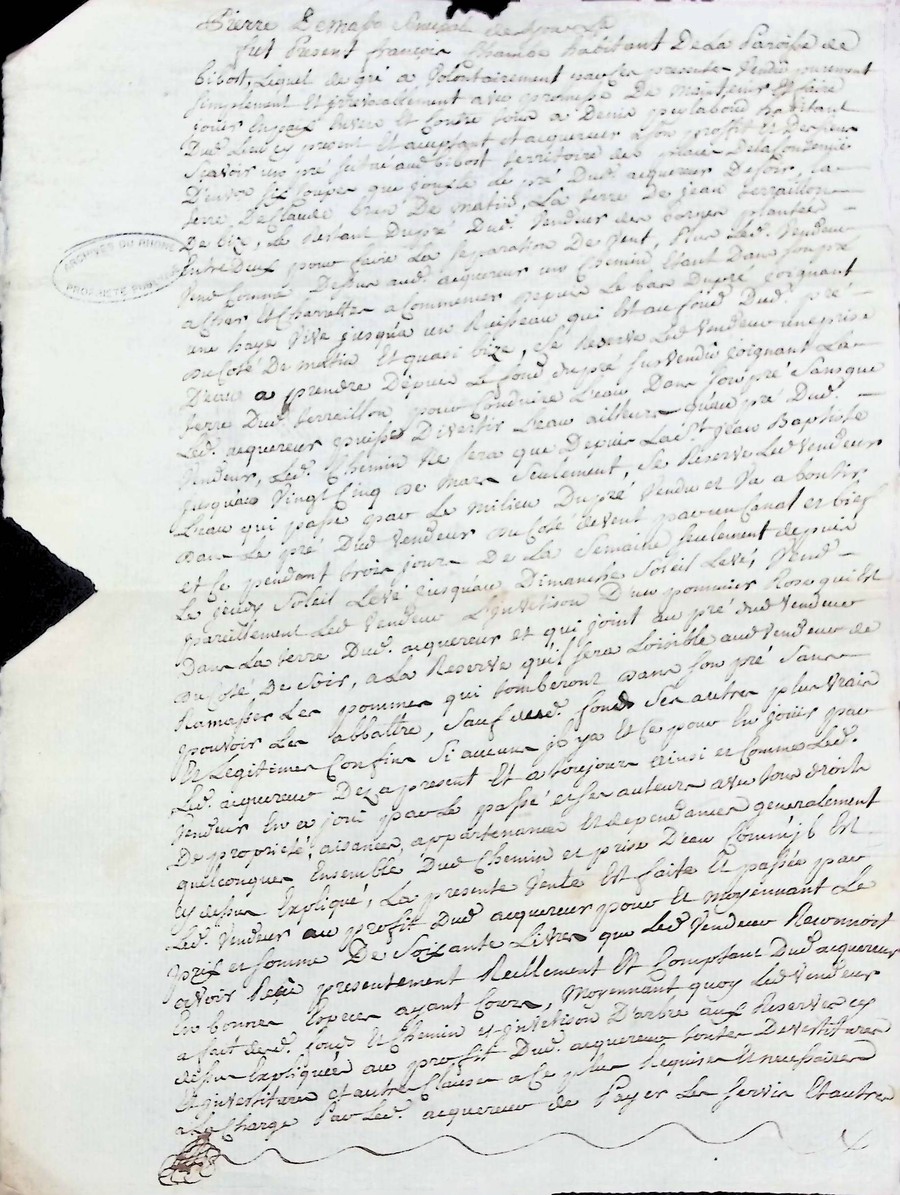 Pierre Demase
fut Present françois habitant De La Paroisse de
bibost, Lequel de gré a Volontairement par Ces presente Vendu purement
simplement Et irrevocallement avec promesse De maintenir Et faire
jouir En paix Envers Et Contre tous a Denis peylaboud habitant
Dud. Lieu cy present Et acceptant et acquereur a son proffit Et Des siens
Scavoir un pré scitué aud. bibost territoire des De la
D'environ six Coupes que jouxte le pré Dud. acquereur De soir, La
terre De Claude De matin, La terre De jean terraillon
De bize, Le Restant Dupré Dud. Vendeur des bornes plantée
Entre Deux pour faire La Separation De Vent, Plus Led. Vendeur
Vend Comme Dessus aud. acquereur un Chemin Etant Dans son pré
a Char Et Charrettes a Commencer Depuis Le bas Dupré joignant
une haye Vive jusqu'a un Ruisseau qui Est au fond Dud. pré
Du Coté De matin Et quasi bize, Se Reserve Led. Vendeur une prise
D'eau a prendre Depuis Le fond dupré sus vendu joignant La
terre Dud. terreillon pour Conduire L'eau Dans son pré Sans que
Led. acquereur puisse Divertir L'eau ailleurs qu'au pré Dud.
Vendeur, Led. Chemin Ne sera que Depuis La St. jean Baptiste
jusquau Vingt Cinq De mars Seulement, Se Reserve Led. Vendeur
L'eau qui passe par Le milieu Dupré Vendu et Va aboutir
Dans Le pré Dud. Vendeur Du Coté de vent par un Canal et bief
et Ce pendant trois jours De La Semaine seulement depuis
Le jeudy Soleil Levé jusqu'au Dimanche Soleil Levé, Vend
pareillement Led. Vendeur L'investison D'un pommier Rose qui Est
Dans La terre Dud. acquereur et qui joint au pré dud. Vendeur
Du Coté De Soir, a La Reserve qu'il sera Loisible aud. Vendeur de
Ramasser Les pommes qui tomberont Dans son pré Sans
pouvoir Les abbattre, Sauf desd. fonds Ses autres plus vrais
Et Legitimes Confins Si aucuns jl ya Et Ce pour En jouir par
Led. acquereur Des apresent Et a toujours ainsi et Comme Led.
Vendeur En a joui par Le passé et ses auteurs avec tous droits
De propriété, aisances, appartenances Et dependances generalement
quelconques Ensemble Dud. Chemin et prise D'eau Comme jl Est
Cy dessus Expliqué, La presente Vente Est faite Et passée par
Led. Vendeur au profit Dud. acquereur pour Et moyennant Le
prix et somme De Soixante Livres que Led. Vendeur Reconnoit
avoir Reçû presentement Reellement Et Comptant Dud. acquereur
En bonnes Especes ayant Cours, Moyennant quoy Led. Vendeur
a fait desd. fond Et Chemin et jnvetison D'arbre aux Reserves cy
dessus Expliquée au profit Dud. acquereur toutes Devestitures
Et jnvestitures et autre Clauses a Ce plus Requises Et necessaires
a La Charge Par Led. acquereur de Payer Les Servis Et autres
ARCHIVES DU RHONE
PROPRIÉTÉ PUBLIQUE